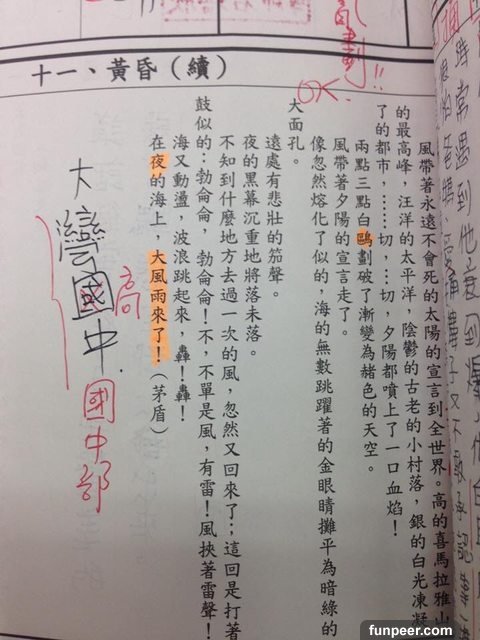 十一、黃昏（續）
風帶著永遠不會死的太陽的宣言到全世界。高的喜馬拉雅山
的最高峰，汪洋的太平洋，陰鬱的古老的小村落，銀的白光凍凝
了的都市，……切，…切，夕陽都噴上了一口血焰！
兩點三點白鷗劃破了漸變為赭色的天空。
風帶著夕陽的宣言走了。
像忽然熔化了似的，海的無數跳躍著的金眼睛攤平為暗綠的
大面孔。
遠處有悲壯的笳聲。
夜的黑幕沉重地將落未落。
不知到什麼地方去過一次的風，忽然又回來了；這回是打著
鼓似的：勃侖侖，勃侖侖！不，不單是風，有雷！風挾著雷聲！
海又動盪，波浪跳起來，轟！轟！
在夜的海上，大風雨來了！（茅盾）
OK.
大灣國中.
高
國中部
時常遇到他
funpeer.com